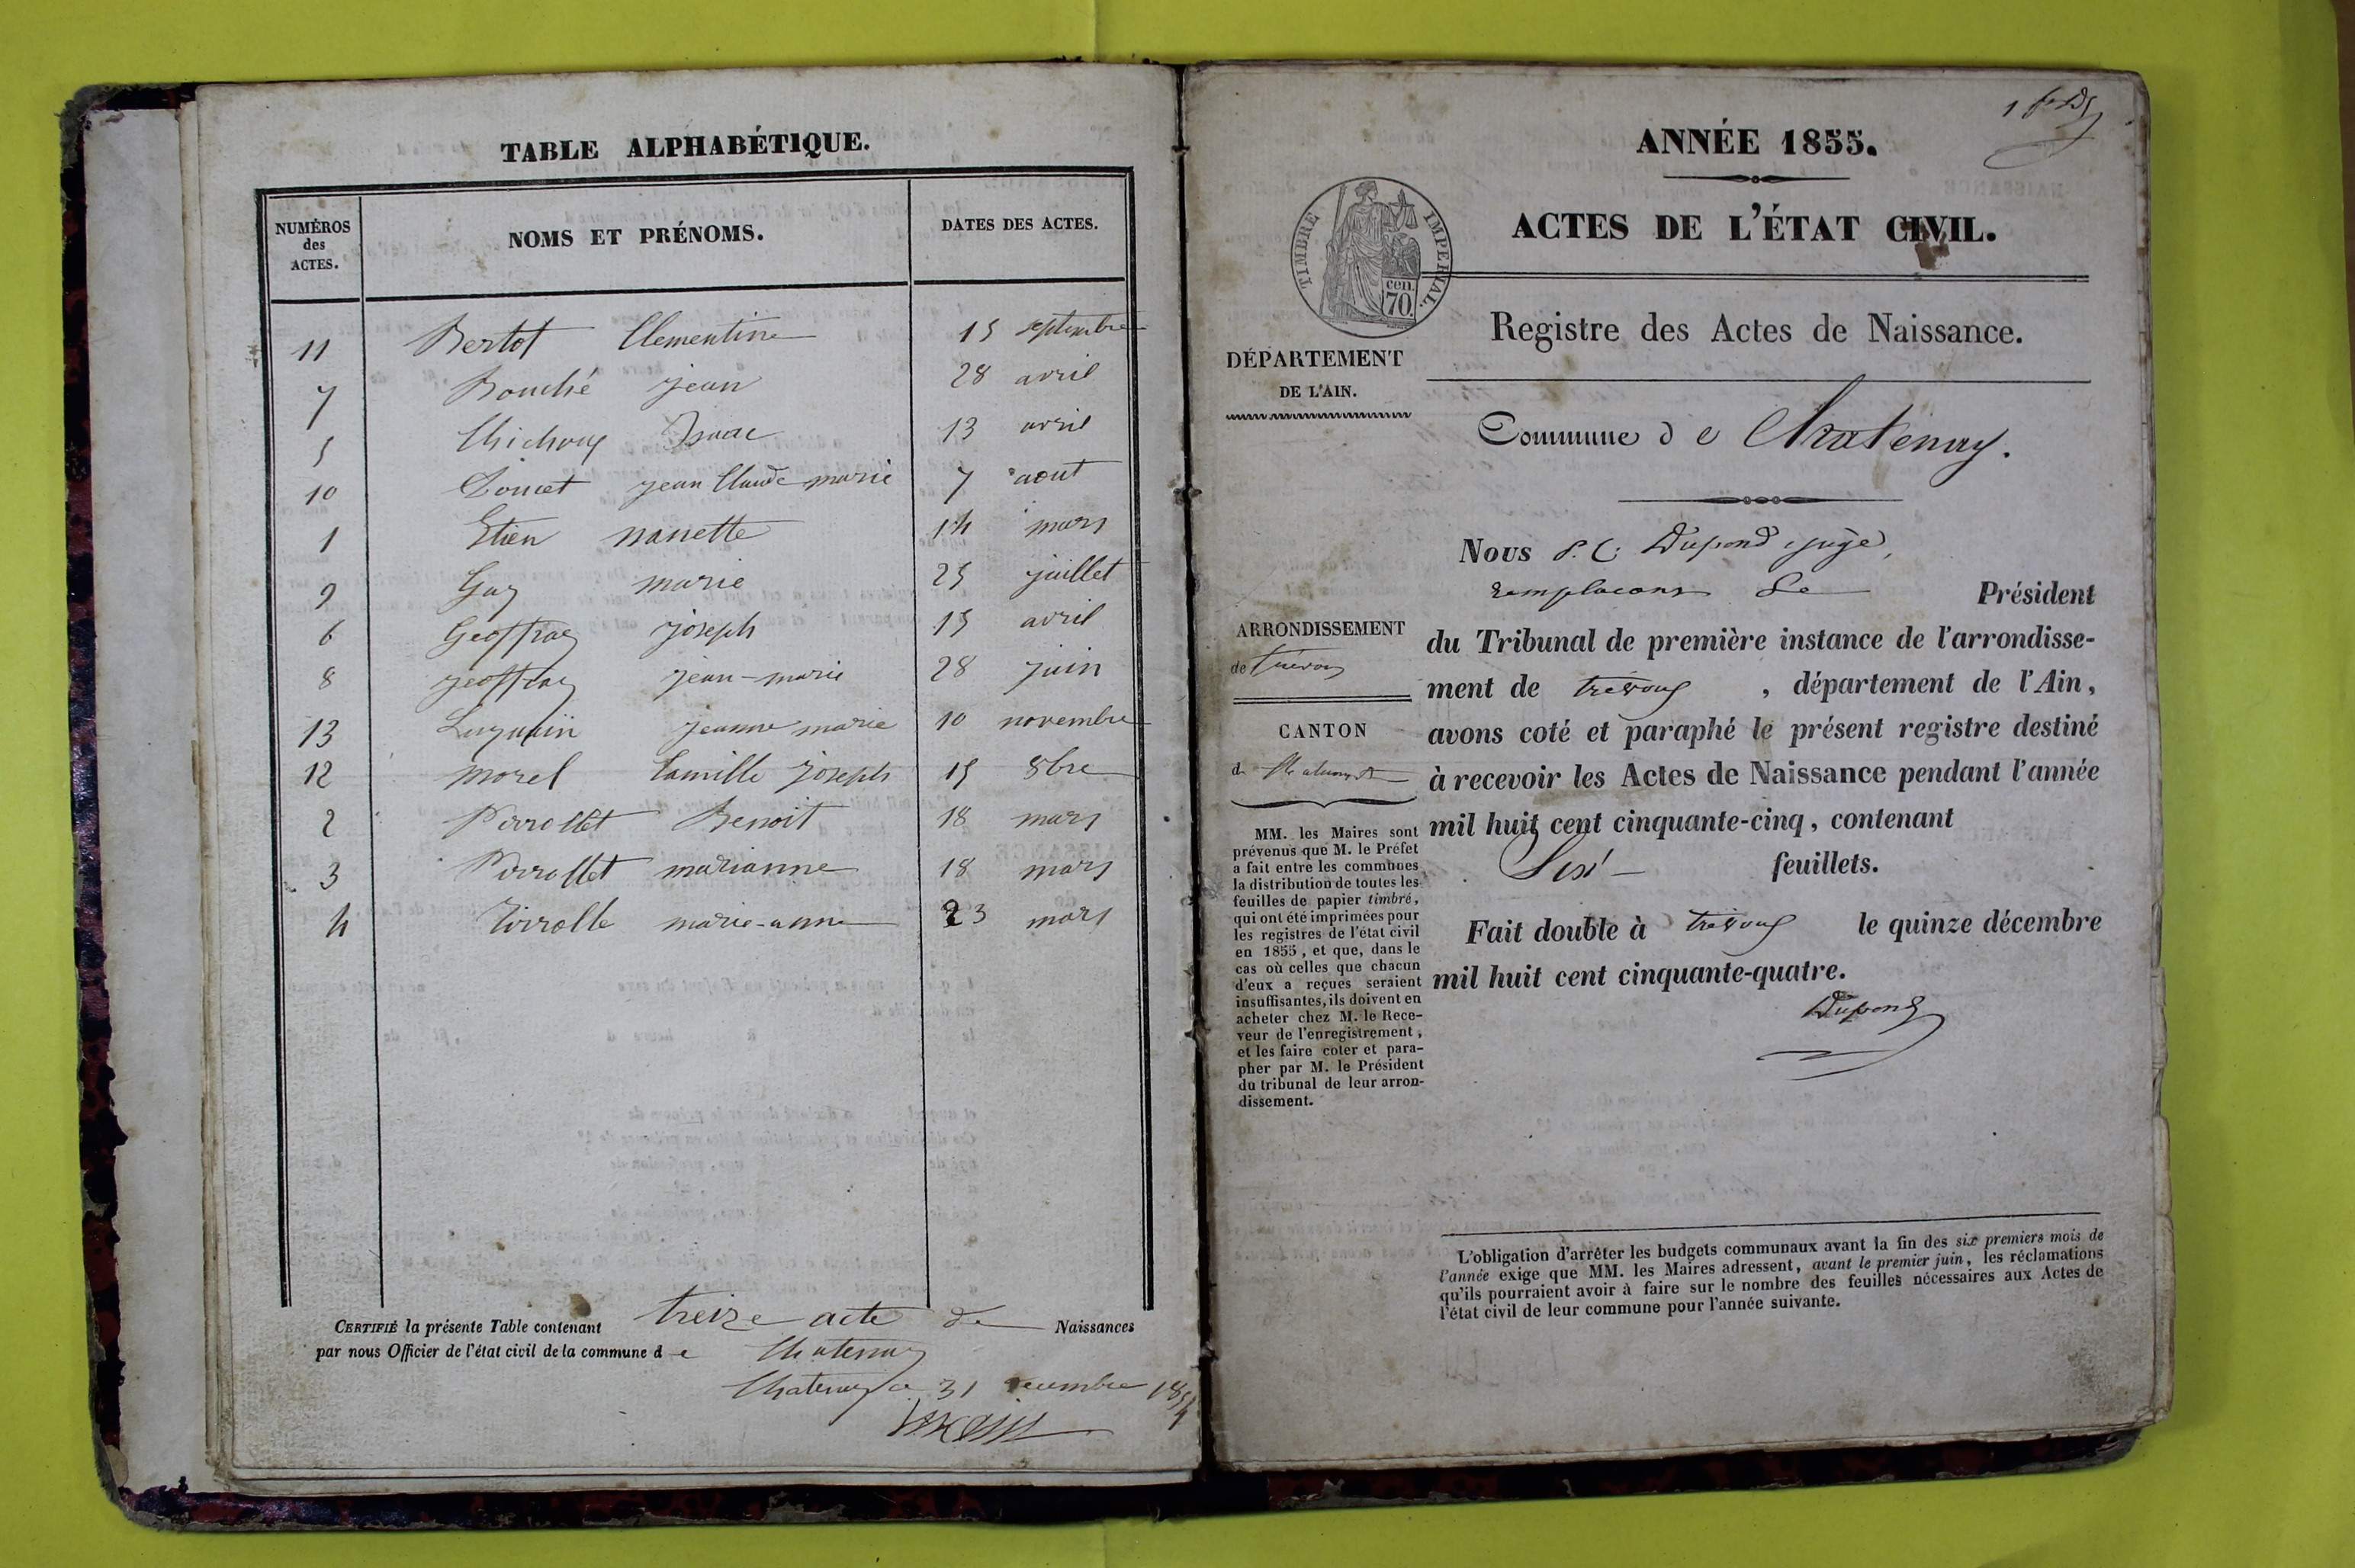 TABLE ALPHABÉTIQUE.
NUMÉROS des ACTES.
NOMS ET PRÉNOMS.
DATES DES ACTES.
11 Bertot Clementine 15 septembre
7 Bouché jean 28 avril
5 Chichoux Isaac 13 avril
10 Doucet jean Claude marie 7 aout
1 Etien nanette 14 mars
9 Guy marie 25 juillet
6 Geoffray joseph 15 avril
8 jeoffray jean-marie 28 juin
13 jeanne marie 10 novembre
12 morel Camille joseph 15 8bre
2 Perrollet Benoit 18 mars
3 Perrollet marianne 18 mars
4 marie-anne 23 mars
CERTIFIÉ la présente Table contenant treize acte de Naissances
par nous Officier de l'état civil de la commune d e Chatenay
Chatenay ce 31 decembre 1854
ANNÉE 1855.
ACTES DE L'ÉTAT CIVIL.
TIMBRE IMPERIAL.
cen. 70.
Registre des Actes de Naissance.
DÉPARTEMENT
DE L'AIN.
Commune d e Chatenay.
ARRONDISSEMENT
de Trévoux
CANTON
MM. les Maires sont
prévenus que M. le Préfet
a fait entre les communes
la distribution de toutes les
feuilles de papier timbré,
qui ont été imprimées pour
les registres de l'état civil
en 1855, et que, dans le
cas où celles que chacun
d'eux a reçues seraient
insuffisantes, ils doivent en
acheter chez M. le Rece-
veur de l'enregistrement,
et les faire coter et para-
pher par M. le Président
du tribunal de leur arron-
dissement.
Nous Dupond juge,
remplacons Le Président
du Tribunal de première instance de l'arrondisse-
ment de trévoux , département de l'Ain,
avons coté et paraphé le présent registre destiné
à recevoir les Actes de Naissance pendant l'année
mil huit cent cinquante-cinq, contenant
Six feuillets.
Fait double à trévoux le quinze décembre
mil huit cent cinquante-quatre.
Dupond
L'obligation d'arrêter les budgets communaux avant la fin des six premiers mois de
l'année exige que MM. les Maires adressent, avant le premier juin, les réclamations
qu'ils pourraient avoir à faire sur le nombre des feuilles nécessaires aux Actes de
l'état civil de leur commune pour l'année suivante.